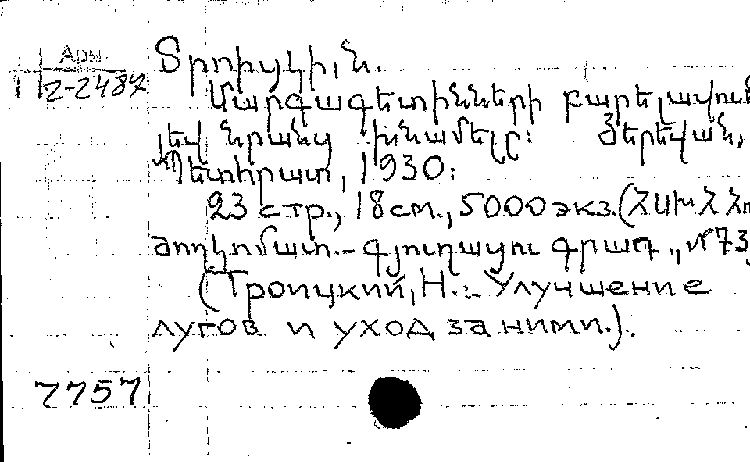 Арм.
2-2487
Տրոիցկի, Ն.
Մարգագետինների բարելավում
յեվ նրանց խնամելը: Յերեվան,
Պետհրատ, 1930:
23 стр., 18 см., 5000 экз. (ՀՍԽՀ Հո
ժողկոմատ.- գյուղացու գրադ., № 73
(Троицкий, Н.. Улучшение
лугов и уход за ними.).
7757